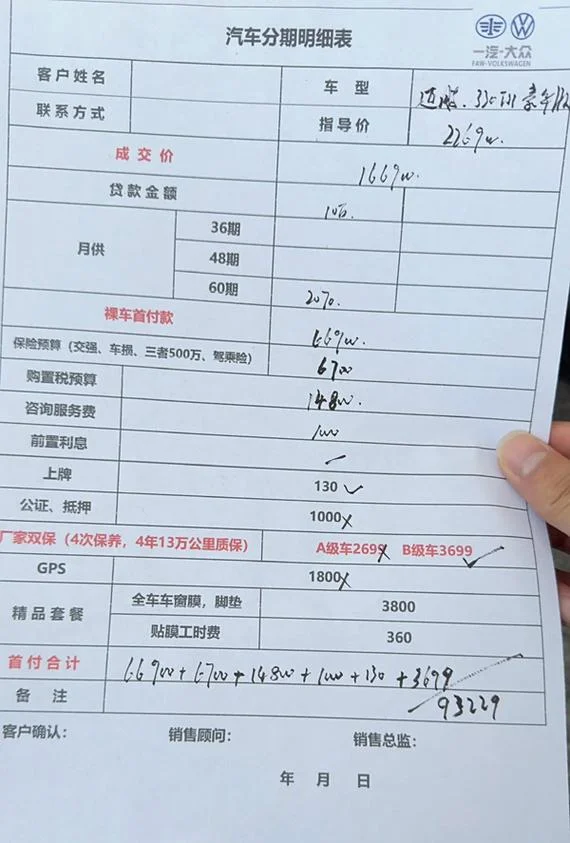 汽车分期明细表
一汽-大众
FAW-VOLKSWAGEN
客户姓名 车型 迈腾.330TSI 豪华版
联系方式 指导价 226900.
成交价 166900.
贷款金额 10万.
月供 36期
48期
60期 2070.
裸车首付款 66900.
保险预算（交强、车损、三者500万、驾乘险） 6700
购置税预算 14800.
咨询服务费 1000
前置利息
上牌 130 ✓
公证、抵押 1000 ×
厂家双保（4次保养，4年13万公里质保） A级车2699 × B级车3699 ✓
GPS 1800 ×
精品套餐 全车车窗膜，脚垫 3800
贴膜工时费 360
首付合计 66900+6700+14800+1000+130+3699
备注 93229
客户确认： 销售顾问： 销售总监：
年 月 日